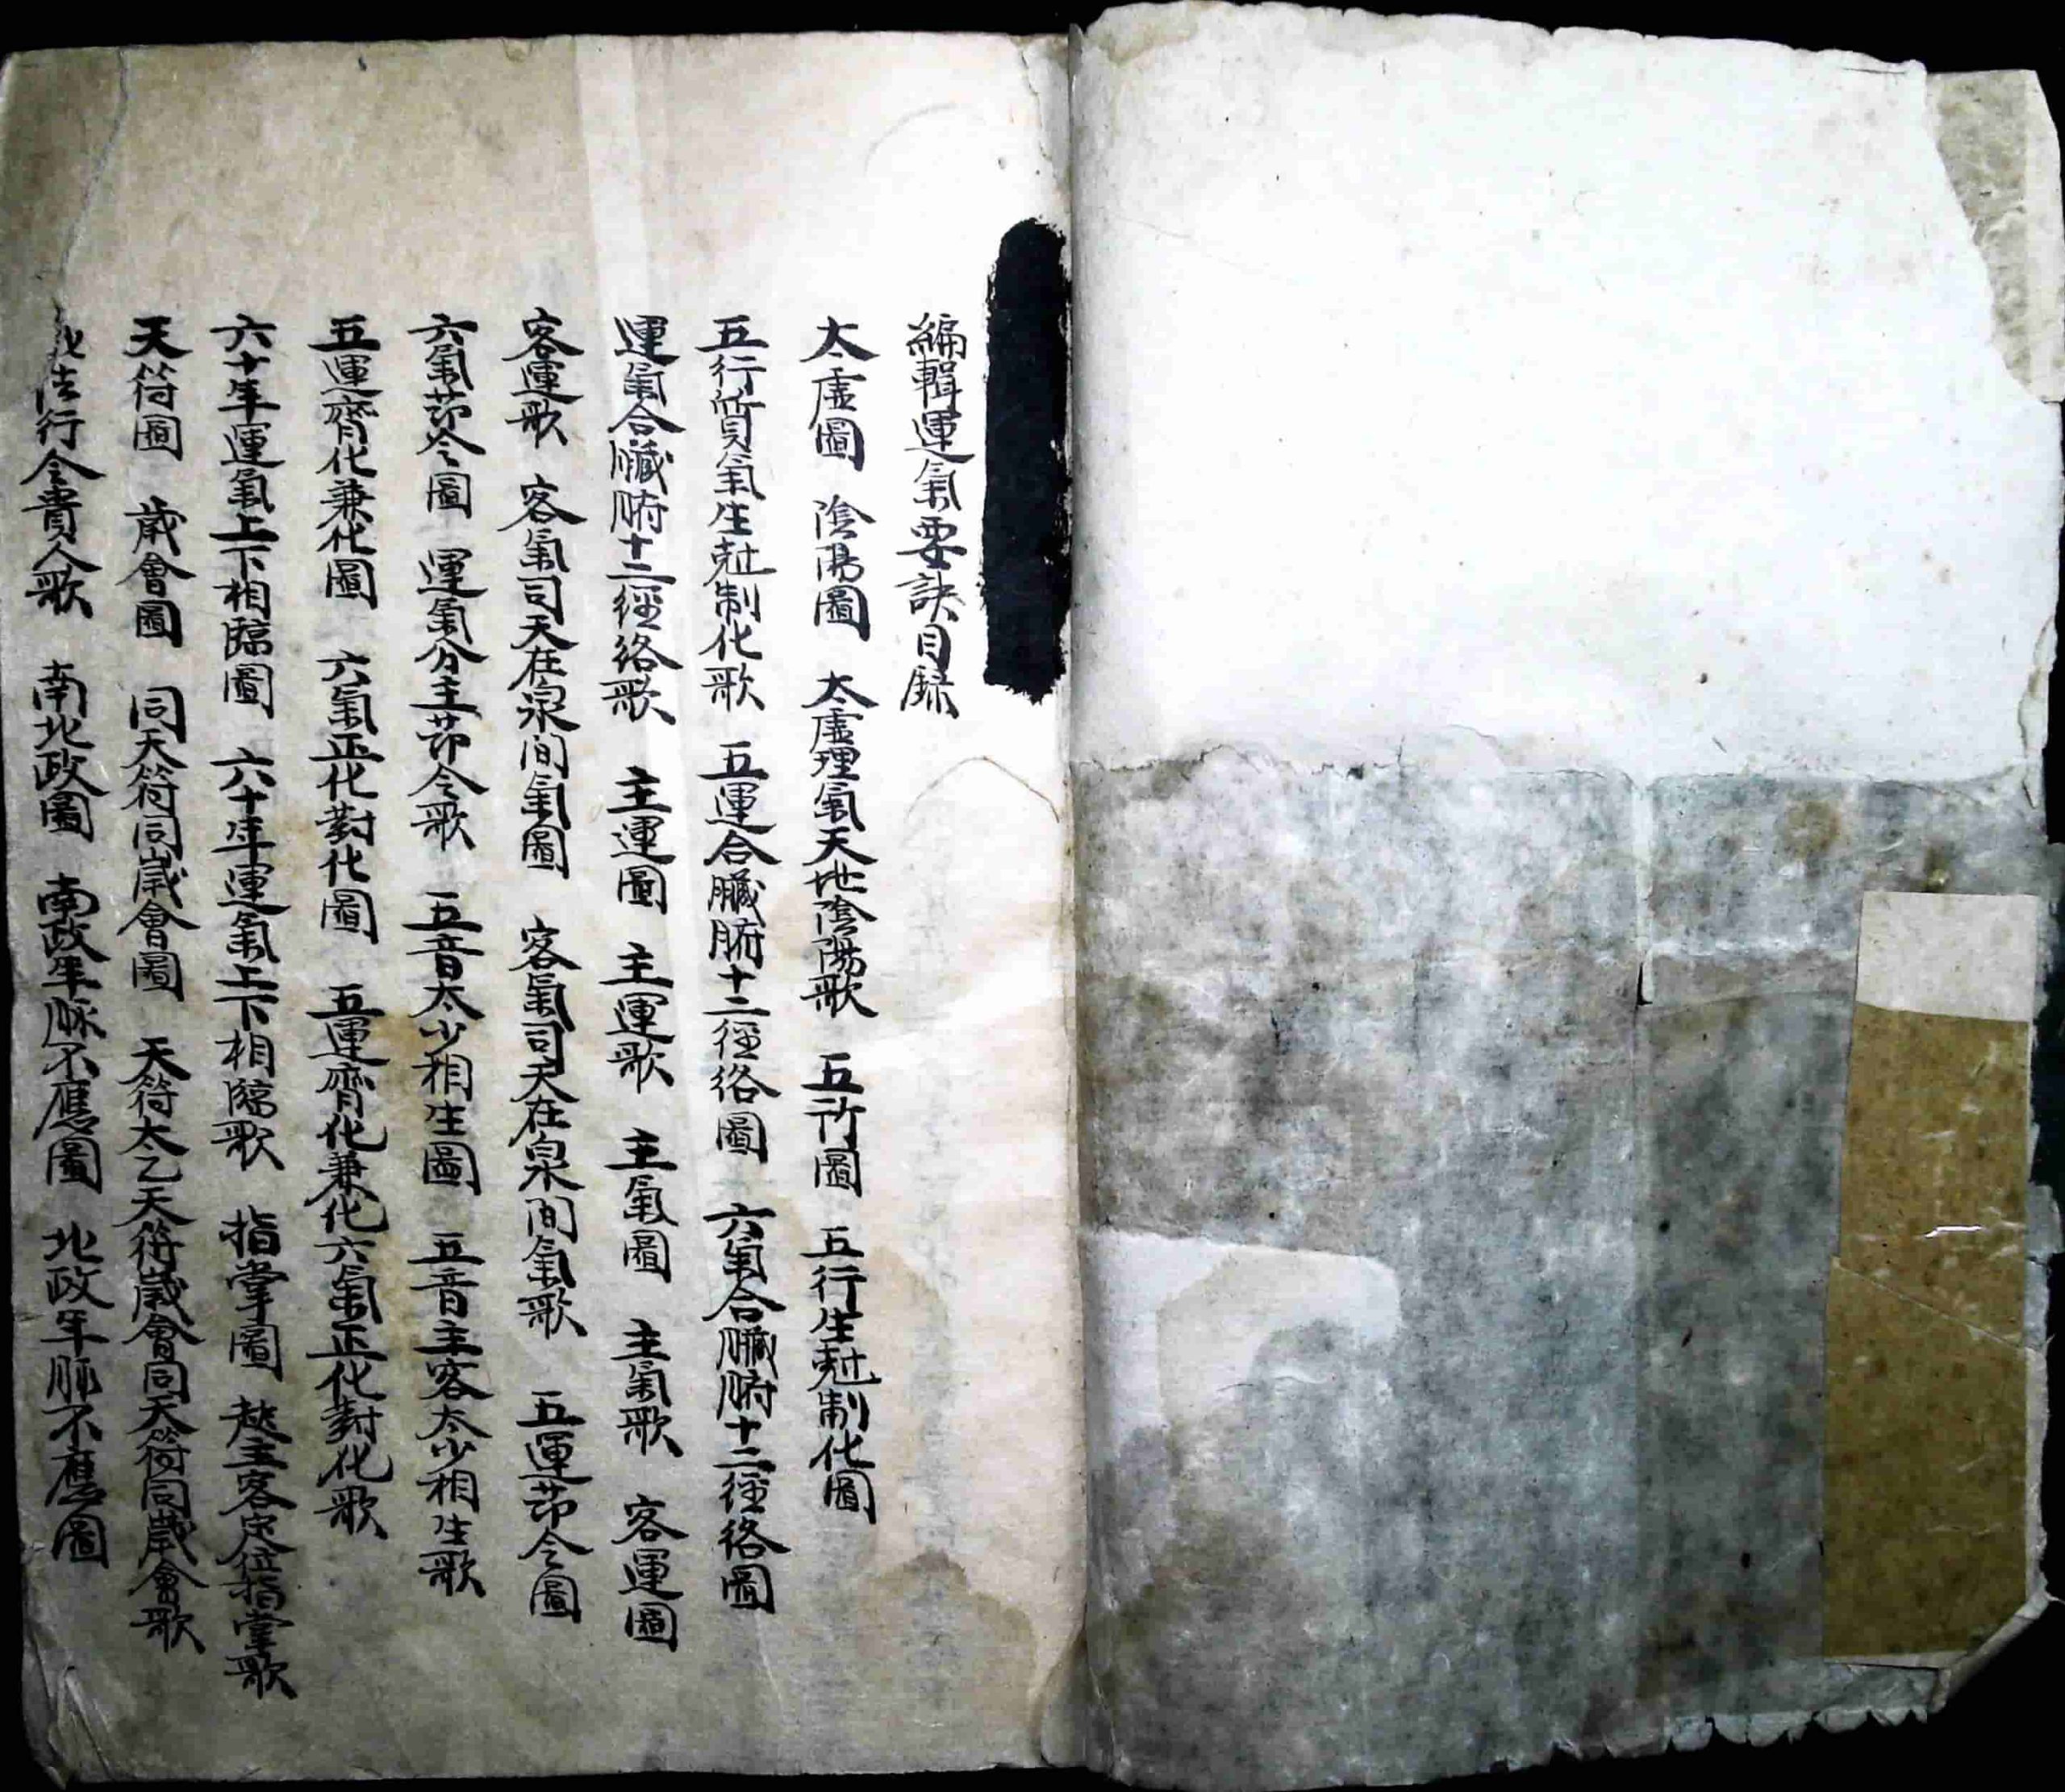 編輯運氣要訣目録
太虛圖 陰陽圖 太虛理氣天地陰陽歌 五行圖 五行生尅制化圖
五行質氣生尅制化歌 五運合臟腑十二徑絡圖 六氣合臟腑十二徑絡圖
運氣合臟腑十二徑絡歌 主運圖 主運歌 主氣圖 主氣歌 客運圖
客運歌 客氣司天在泉間氣圖 客氣司天在泉間氣歌 五運節令圖
六氣節令圖 運氣分主節令歌 五音太少相生圖 五音主客太少相生歌
五運齊化兼化圖 六氣正化對化圖 五運齊化兼化六氣正化對化歌
六十年運氣上下相臨圖 六十年運氣上下相臨歌 指掌圖 起主客定位指掌歌
天符圖 歲會圖 同天符同歲會圖 天符太乙天符歲會同天符同歲會歌
法行令貴人歌 南北政圖 南政年脉不應圖 北政年脉不應圖